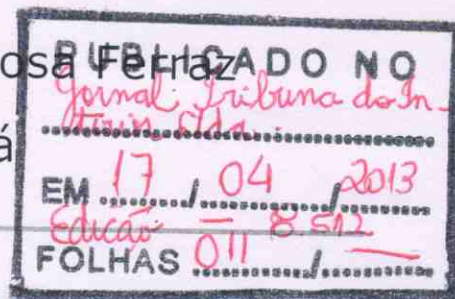 osa Ferraz
á
PUBLICADO NO
Jornal Tribuna do In-
terior Ltda.
EM 17 / 04 / 2013
Edição 8.512
FOLHAS 011 / —